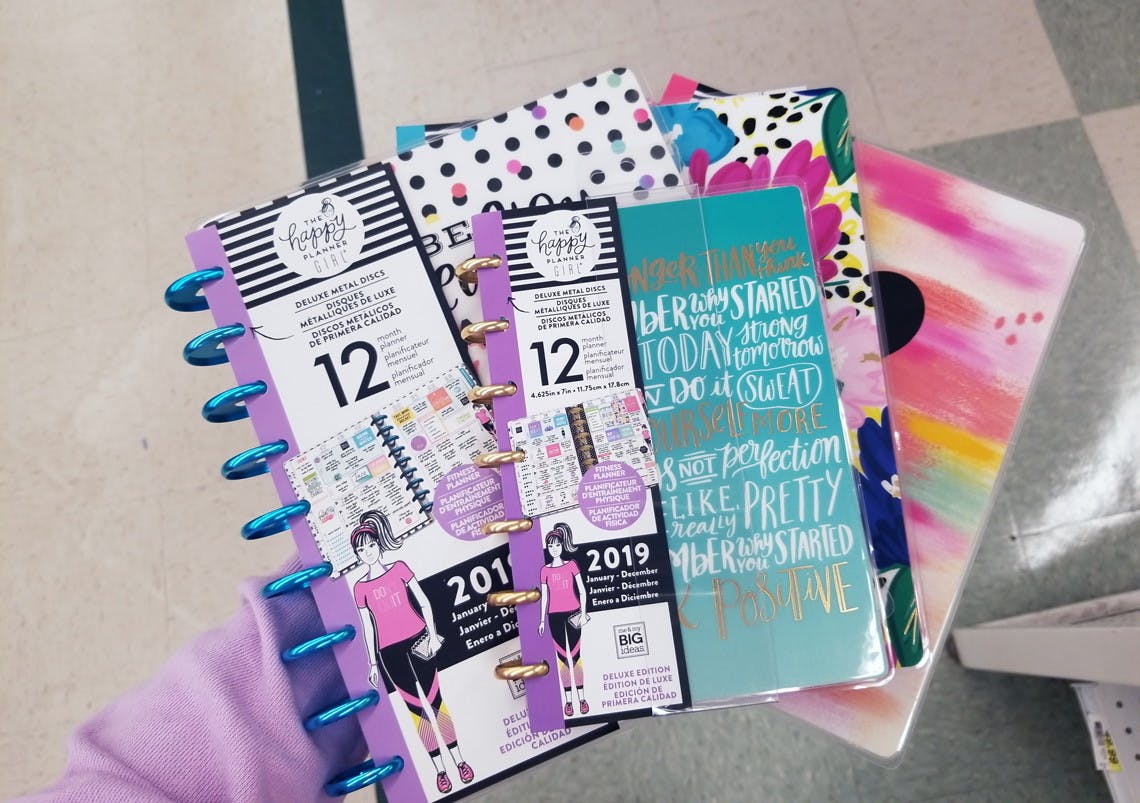 THE
happy
PLANNER
GIRL
DELUXE METAL DISCS
DISQUES
MÉTALLIQUES DE LUXE
DISCOS METÁLICOS
DE PRIMERA CALIDAD
12
month
planner
planificateur
mensuel
planificador
mensual
FITNESS
PLANNER
PLANIFICATEUR
D'ENTRAÎNEMENT
PHYSIQUE
PLANIFICADOR
DE ACTIVIDAD
DO
IT
2019
January
Janvier - Déc
Enero a Dic
DELU
ÉDITION
EDICIÓN
CALIDAD
BE
THE
happy
PLANNER
GIRL
DELUXE METAL DISCS
DISQUES
MÉTALLIQUES DE LUXE
DISCOS METÁLICOS
DE PRIMERA CALIDAD
12
month
planner
planificateur
mensuel
planificador
mensual
4.625in x 7in • 11.75cm x 17.8cm
FITNESS
PLANNER
PLANIFICATEUR
D'ENTRAÎNEMENT
PHYSIQUE
PLANIFICADOR
DE ACTIVIDAD
FÍSICA
2019
January - December
Janvier - Décembre
Enero a Diciembre
me & my
BIG
ideas
DELUXE EDITION
ÉDITION DE LUXE
EDICIÓN DE
PRIMERA CALIDAD
NGER THAN you think
MBER why you STARTED
TODAY strong tomorrow
N DO it (SWEAT)
OURSELF MORE
S NOT perfection
LIKE, really PRETTY
MBER why you STARTED
K POSITIVE